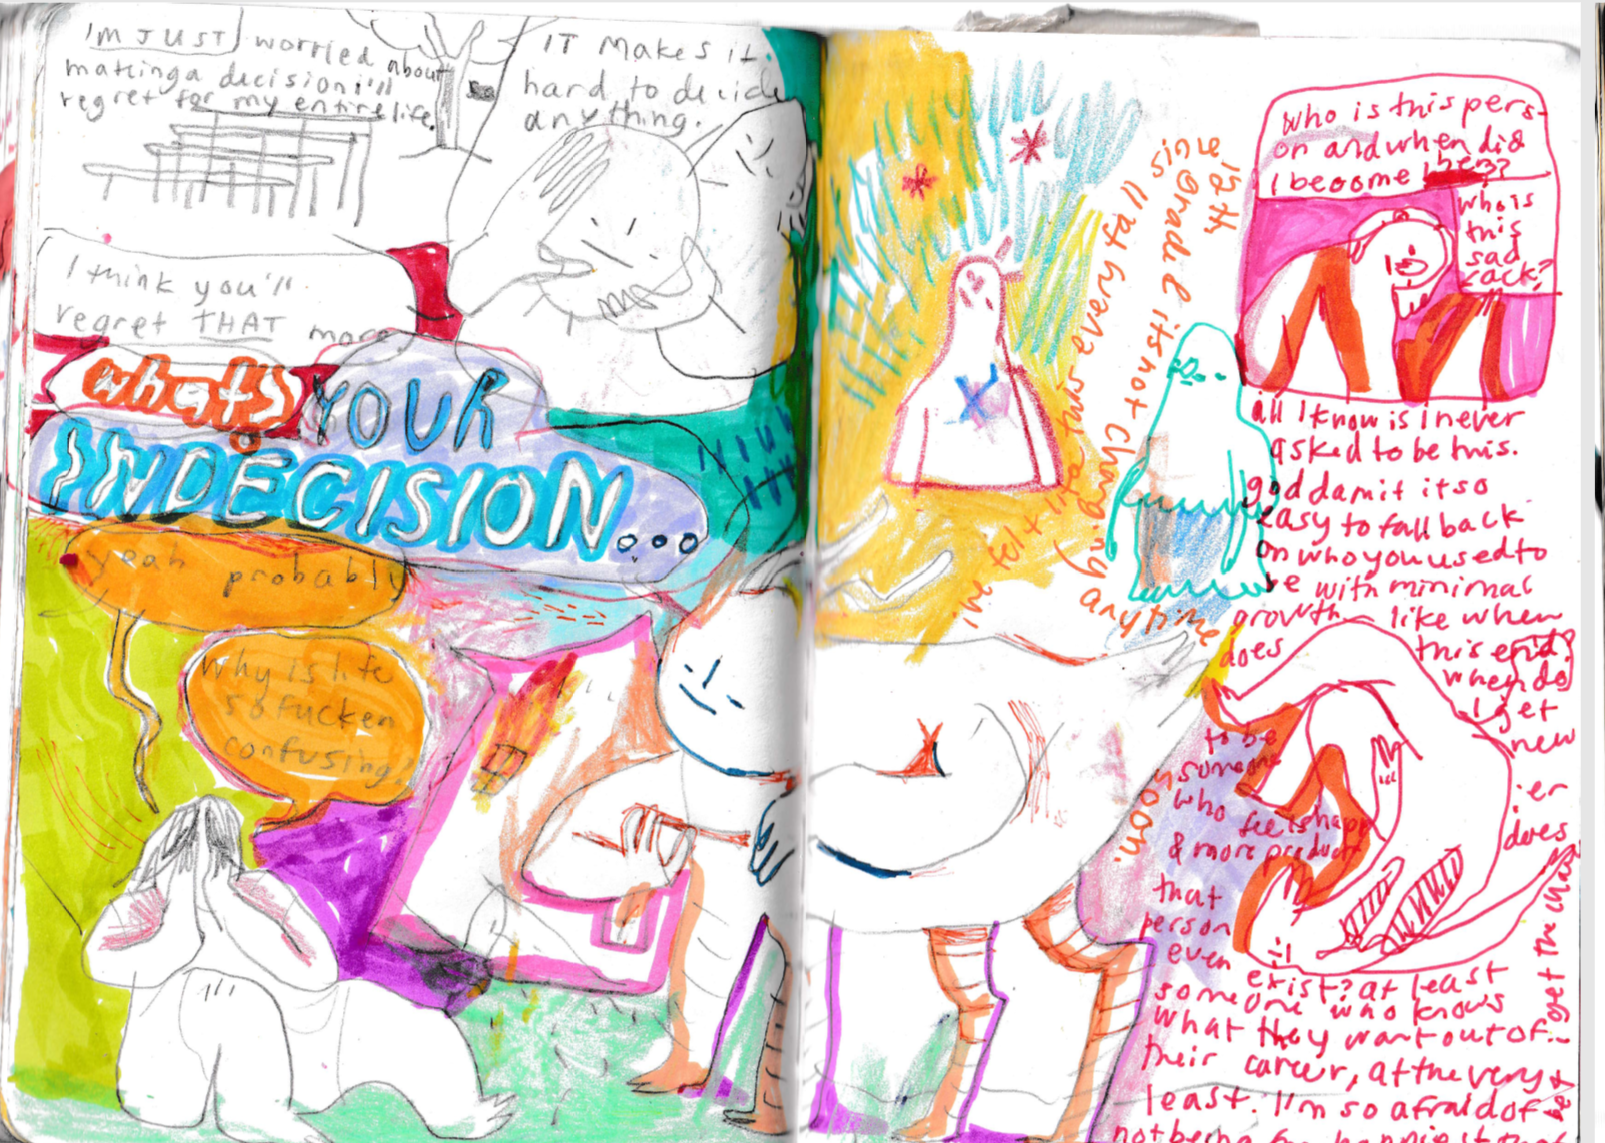 I'm JUST worried
about
making a decision i'll
regret for my entire life.
IT makes it
hard to decide
anything.
I think you'll
regret THAT more
what's YOUR
INDECISION...
yeah probably
why is life
so fucken
confusing?
i've felt like this every fall
since
7th grade & its not changing
anytime
soon.
Who is this pers-
on and when did
I become her?
who is
this
sad
sack?
all I know is I never
asked to be this.
god damit it so
easy to fall back
on who you used to
be with minimal
growth - like when
does this end?
when do
I get
to be new
someone
who feels happ
& more product
ier
does
that
person
even
exist? at least
someone who knows
what they want out of
their career, at the very
least. I'm so afraid of
not being
get the chan